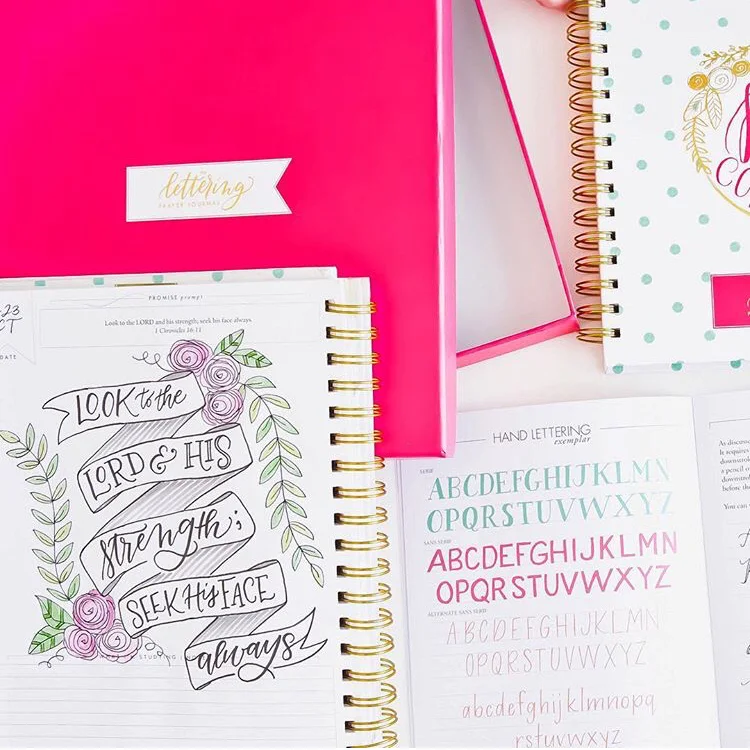 the
lettering
PRAYER JOURNAL
23
CT
DATE
PROMISE prompt
Look to the LORD and his strength; seek his face always.
1 Chronicles 16:11
LOOK to the
LORD & HIS
strength;
SEEK His FACE
always
STUDYING
HAND LETTERING
exemplar
SERIF
ABCDEFGHIJKLMN
OPQRSTUVWXYZ
SANS SERIF
ABCDEFGHIJKLMN
OPQRSTUVWXYZ
ALTERNATE SANS SERIF
ABCDEFGHIJKLMN
OPQRSTUVWXYZ
abcdefghijklmnopq
rstuvwxyz
As discus
It requires
downstrok
a pencil o
downstrok
before the
You can